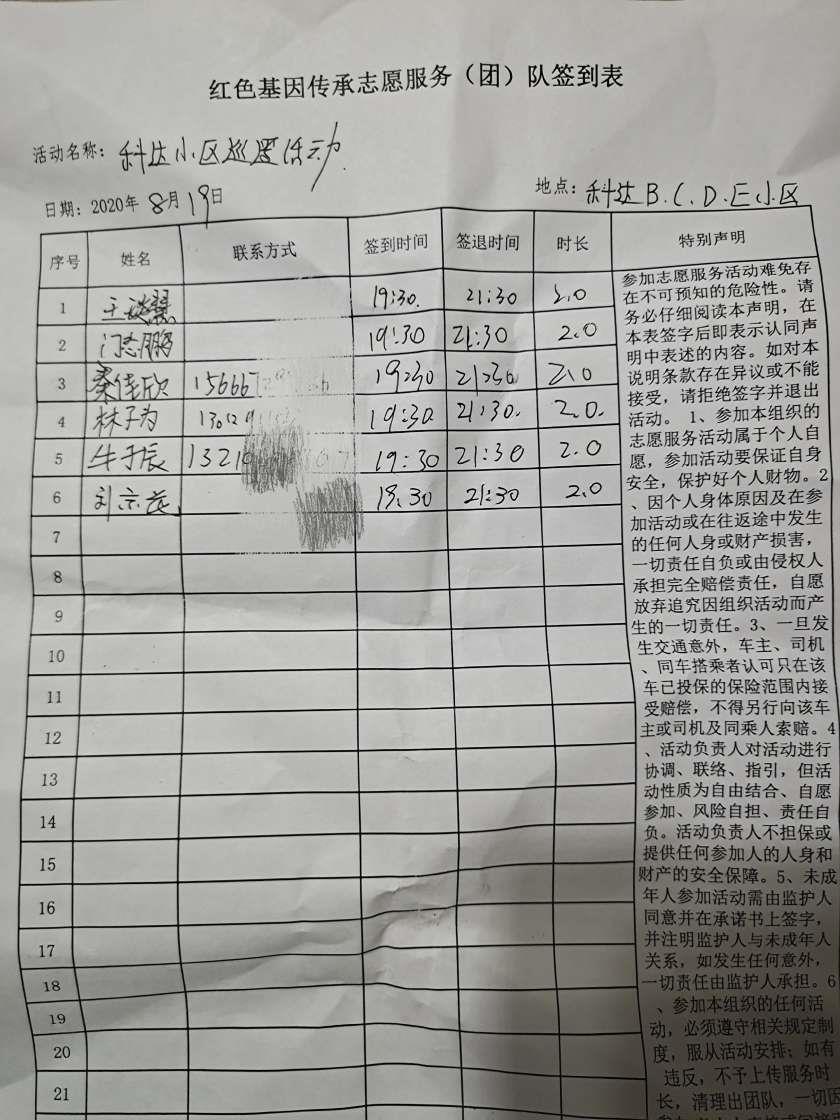 红色基因传承志愿服务（团）队签到表
活动名称：科达小区巡逻活动
日期：2020年8月19日
地点：科达B.C.D.E小区
序号 姓名 联系方式 签到时间 签退时间 时长 特别声明
1 19:30. 21:30 2.0
2 19:30 21:30 2.0
3 秦佳欣 19:30 21:30 2.0
4 林子为 19:30. 21:30. 2.0.
5 牛子辰 19:30 21:30 2.0
6 刘京 19:30 21:30 2.0
7
8
9
10
11
12
13
14
15
16
17
18
19
20
21
参加志愿服务活动难免存
在不可预知的危险性。请
务必仔细阅读本声明，在
本表签字后即表示认同声
明中表述的内容。如对本
说明条款存在异议或不能
接受，请拒绝签字并退出
活动。 1、参加本组织的
志愿服务活动属于个人自
愿，参加活动要保证自身
安全，保护好个人财物。2
、因个人身体原因及在参
加活动或在往返途中发生
的任何人身或财产损害，
一切责任自负或由侵权人
承担完全赔偿责任，自愿
放弃追究因组织活动而产
生的一切责任。3、一旦发
生交通意外，车主、司机
、同车搭乘者认可只在该
车已投保的保险范围内接
受赔偿，不得另行向该车
主或司机及同乘人索赔。4
、活动负责人对活动进行
协调、联络、指引，但活
动性质为自由结合、自愿
参加、风险自担、责任自
负。活动负责人不担保或
提供任何参加人的人身和
财产的安全保障。5、未成
年人参加活动需由监护人
同意并在承诺书上签字，
并注明监护人与未成年人
关系，如发生任何意外，
一切责任由监护人承担。6
、参加本组织的任何活
动，必须遵守相关规定制
度，服从活动安排；如有
违反，不予上传服务时
长，清理出团队，一切